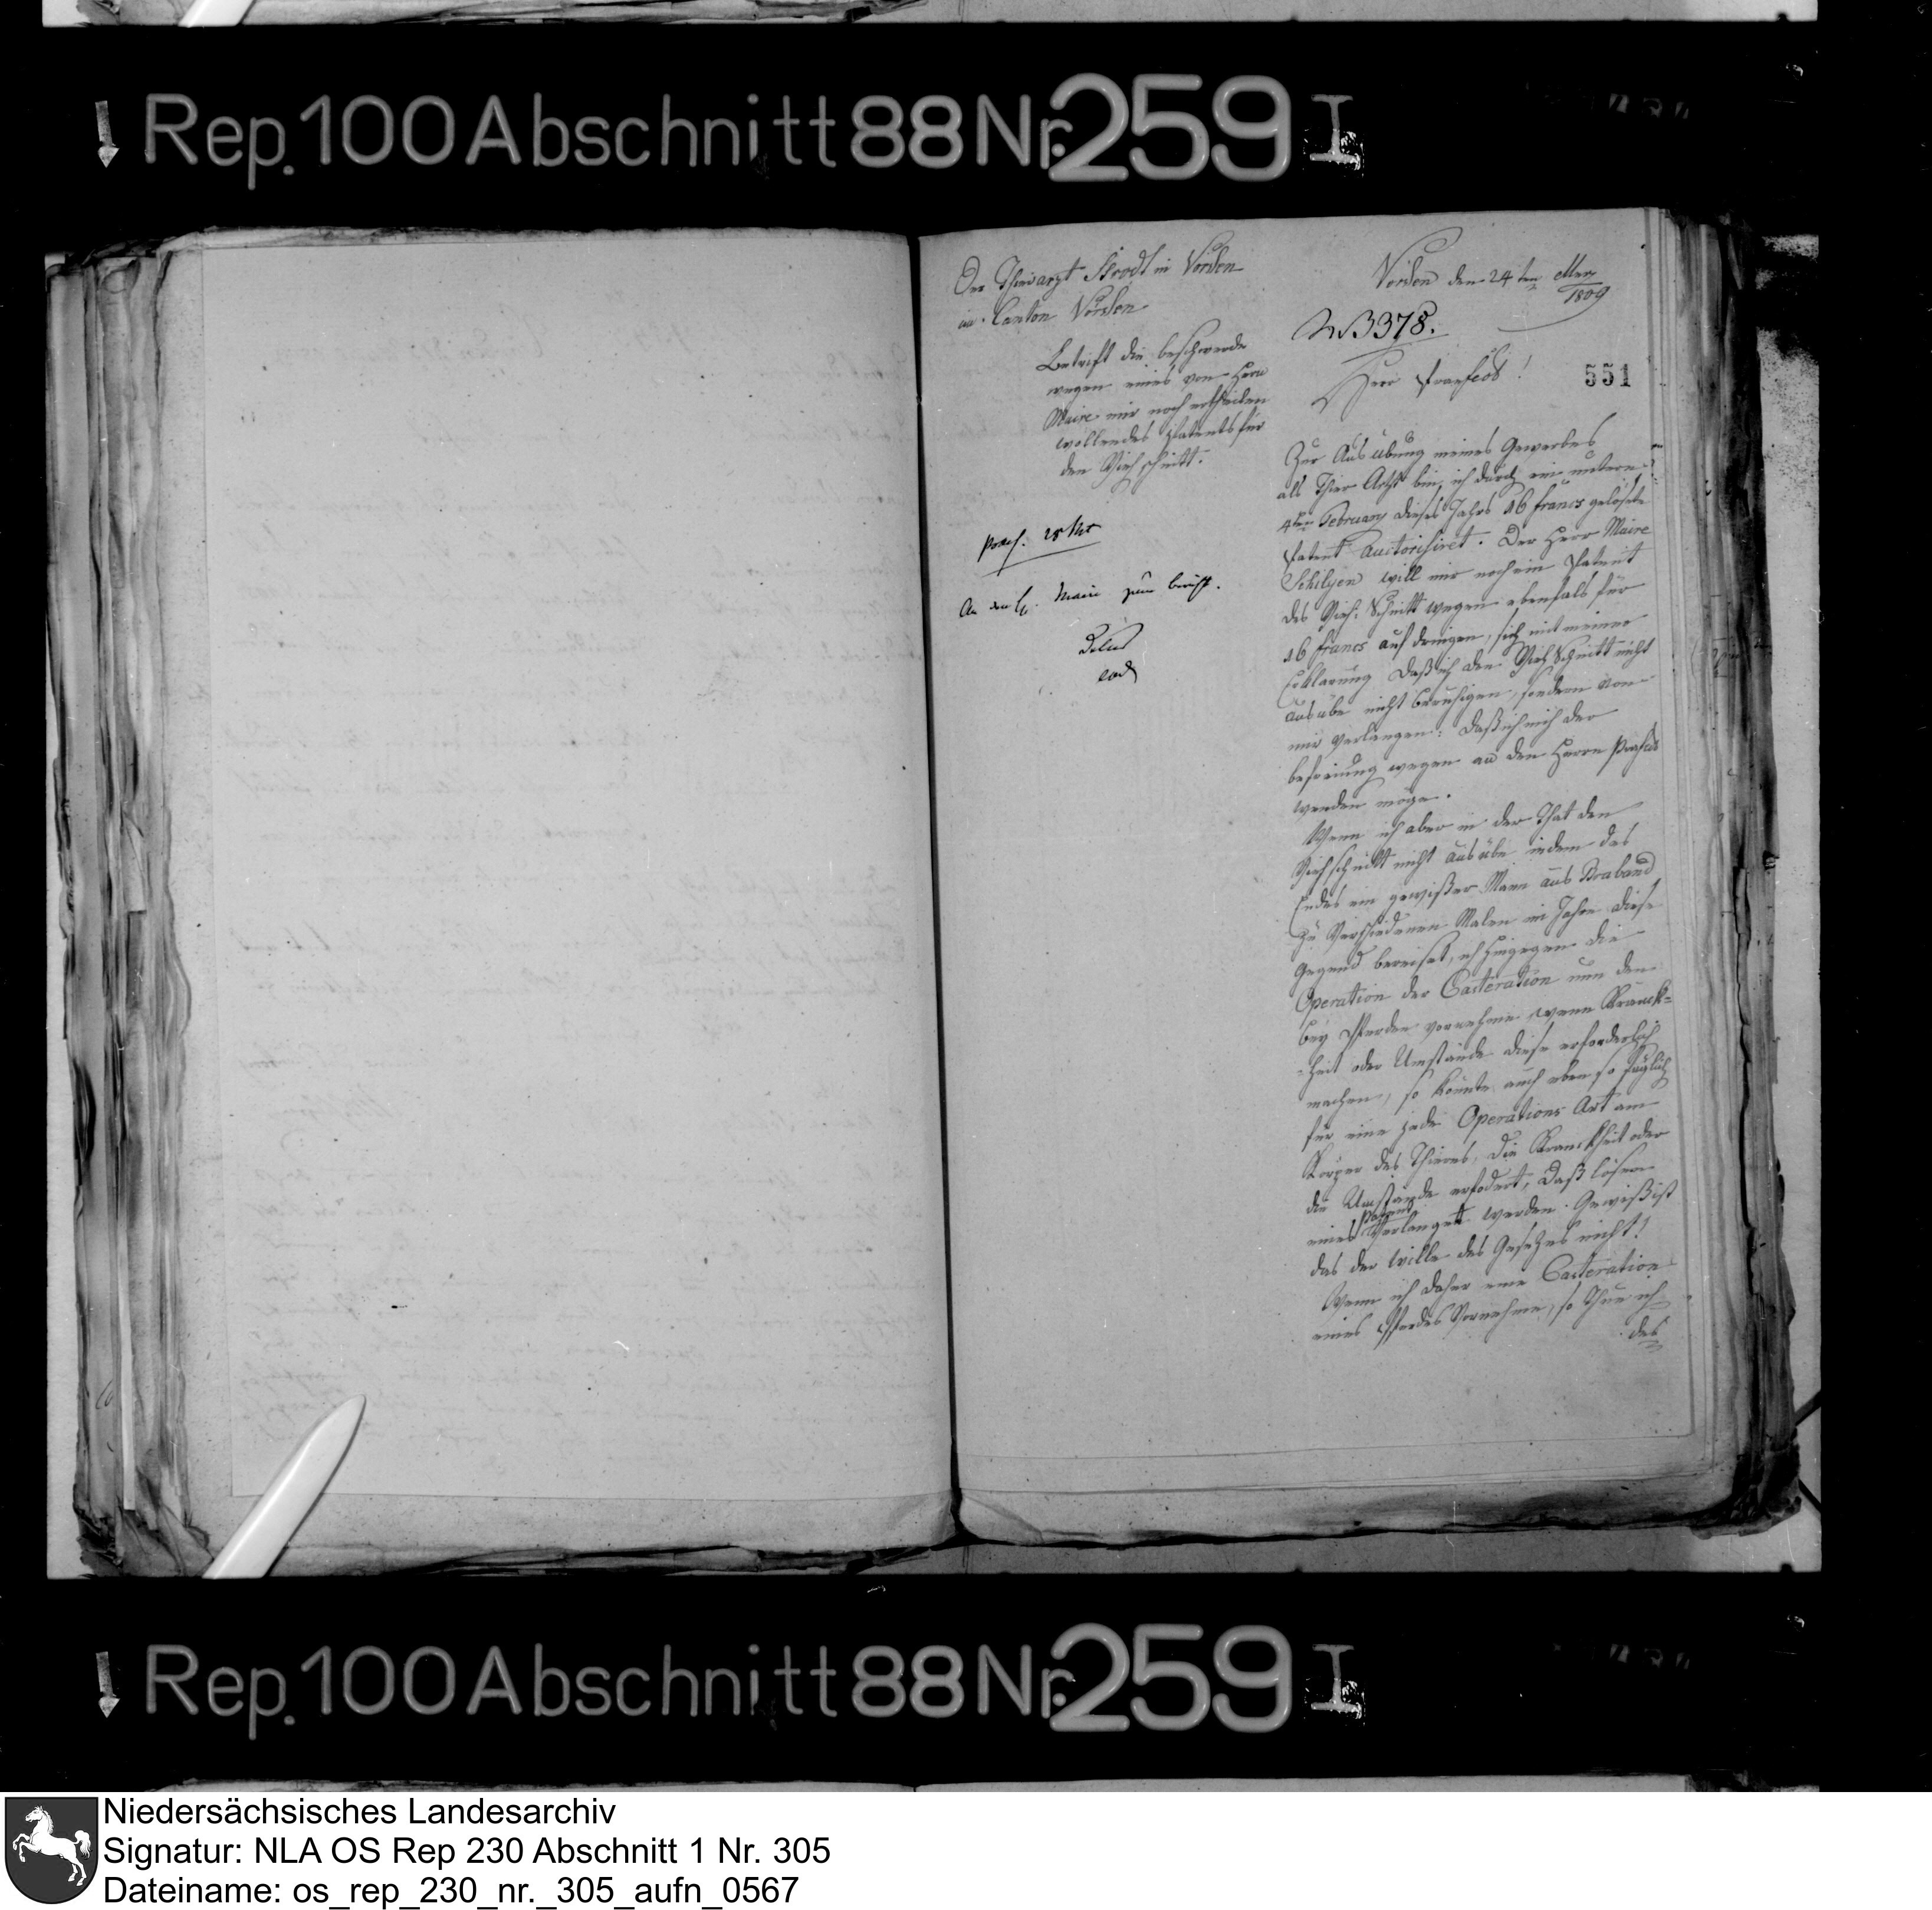 Rep. 100 Abschnitt 88 Nr. 259 I
Der Thierarzt Strodt in Vörden
im Canton Vörden
Betrift die beschwerde
wegen eines von Herrn
Maire mir noch ertheilen
wollendes Patents für
den Viehschnitt.
praes. 28 Mt
An den H. Maire zum bericht.
eod
Vörden den 24ten Merz
1809
N 3378.
Herr Praefect!
551
Zur Ausübung meines Gewerbes
als Thier Artzt bin ich durch ein unterm
4ten February dieses Jahrs 16 francs gelöstete
Patent auctorisiret. Der Herr Maire
Schilgen will mir noch ein Patent
des Vieh-Schnitt wegen ebenfals für
16 francs auf dringen, sich mit meiner
Erklärung daß ich den Vieh Schnitt nicht
ausübe nicht beruhigen, sondern von
mir Verlangen: daß ich mich der
befreiung wegen an den Herrn Prefect
wenden möge.
Wenn ich aber in der That den
Viehschnitt nicht ausübe indem das
Endes ein gewißer Mann aus Braband
zu Verschiedenen Malen im Jahre diese
Gegend bereiset, ich hingegen die
Operation der Casteration nur den
bey Pferden vornehme wenn Kranck=
=heit oder Umstände diese erforderlich
machen, so könnte auch eben so füglich
für eine jede Operations Art am
Körper des Thieres, die Kranckheit oder
die Umstände erfodert, daß lösen
eines Patent Verlanget werden. Gewiß ist
das der Wille des Gesetzes nicht!
Wenn ich daher eine Casteration
eines Pferdes Vornehme, so Thue ich
des
Rep. 100 Abschnitt 88 Nr. 259 I
Niedersächsisches Landesarchiv
Signatur: NLA OS Rep 230 Abschnitt 1 Nr. 305
Dateiname: os_rep_230_nr._305_aufn_0567